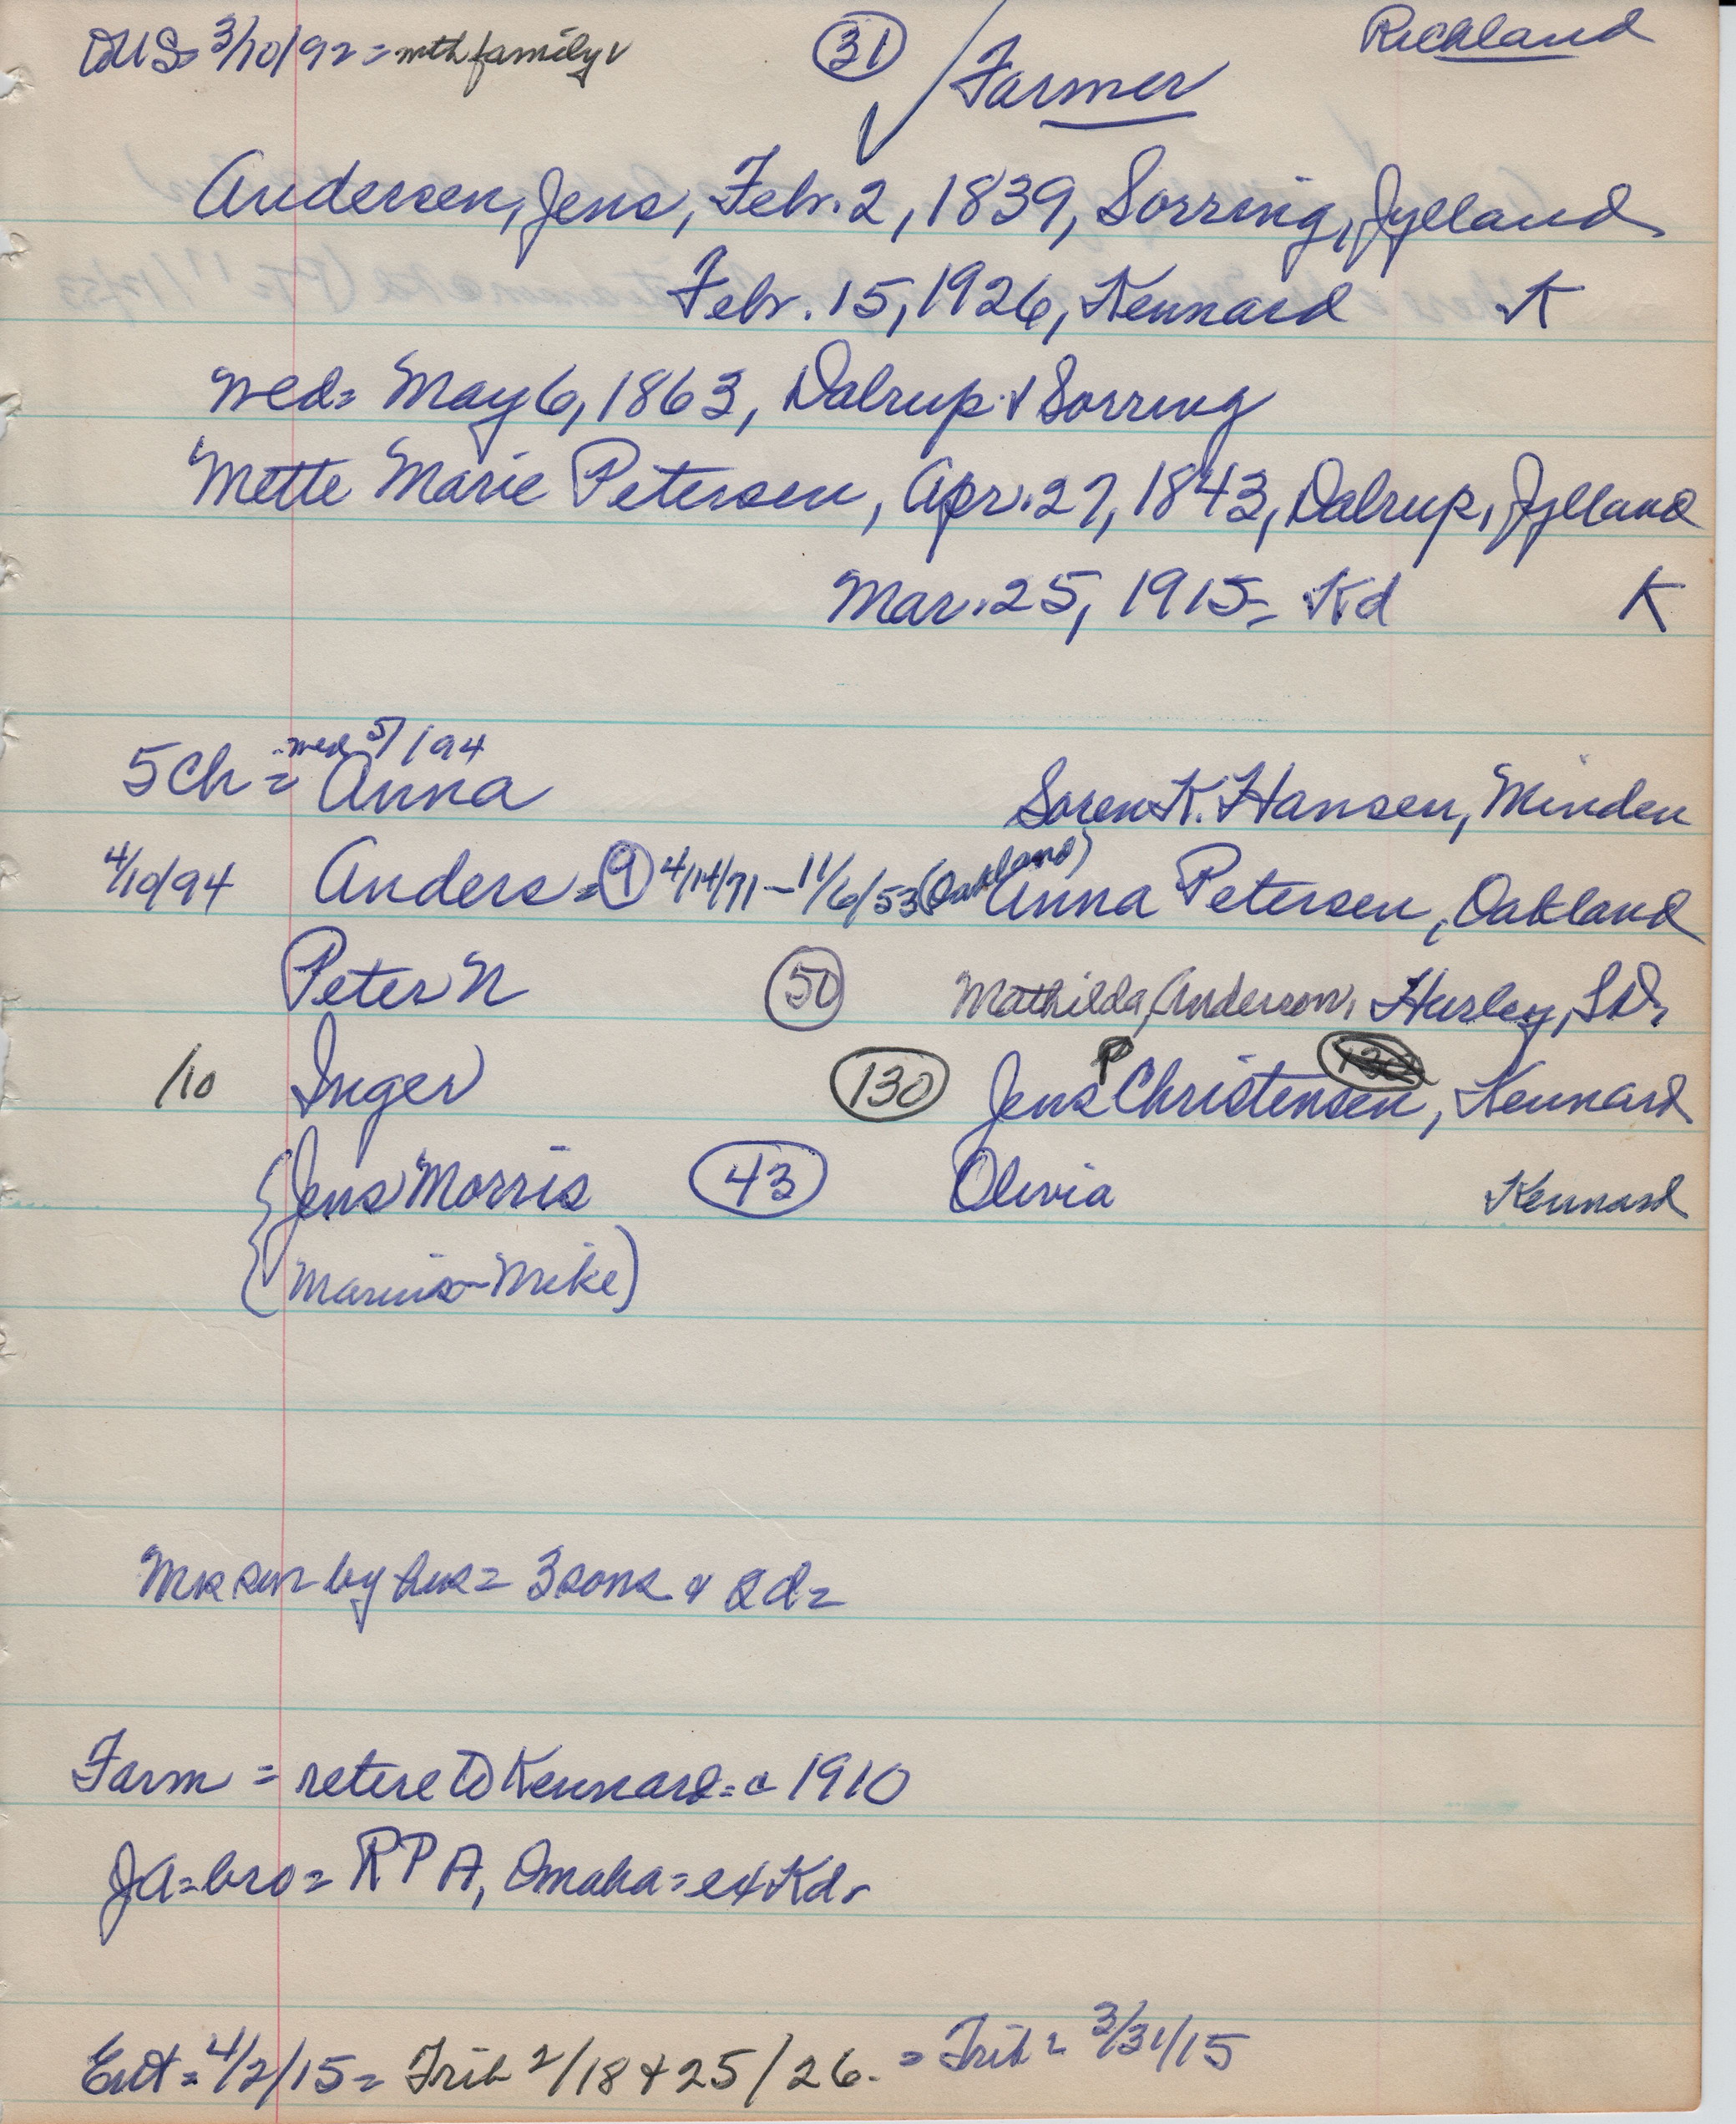 to US= 3/10/92 = with family
31 Richland
Farmer
Andersen, Jens, Feb. 2, 1839, Sorring, Jylland
Feb. 15, 1926, Kennard K
wed= May 6, 1863, Dalrup & Sorring
Mette Marie Petersen, Apr. 27, 1843, Dalrup, Jylland
Mar. 25, 1915= Kd K
wed 5/1/94
5 Ch = Anna Soren K. Hansen, Minden
4/10/94 Anders = 9 4/14/71 - 11/6/53 (Oakland) Anna Petersen, Oakland
Peter N 50 Mathilda Anderson, Hurley, SD
/10 Inger 130 Jens P Christensen, Kennard
Jens Morris 43 Olivia Kennard
(Marius - Mike)
by hus= 3 sons & 2 d=
Farm = retire to Kennard = c 1910
JA = bro = R P A, Omaha = ex Kd
Ent = 4/2/15 = Trib 2/18 & 25/26. = Trib = 3/31/15